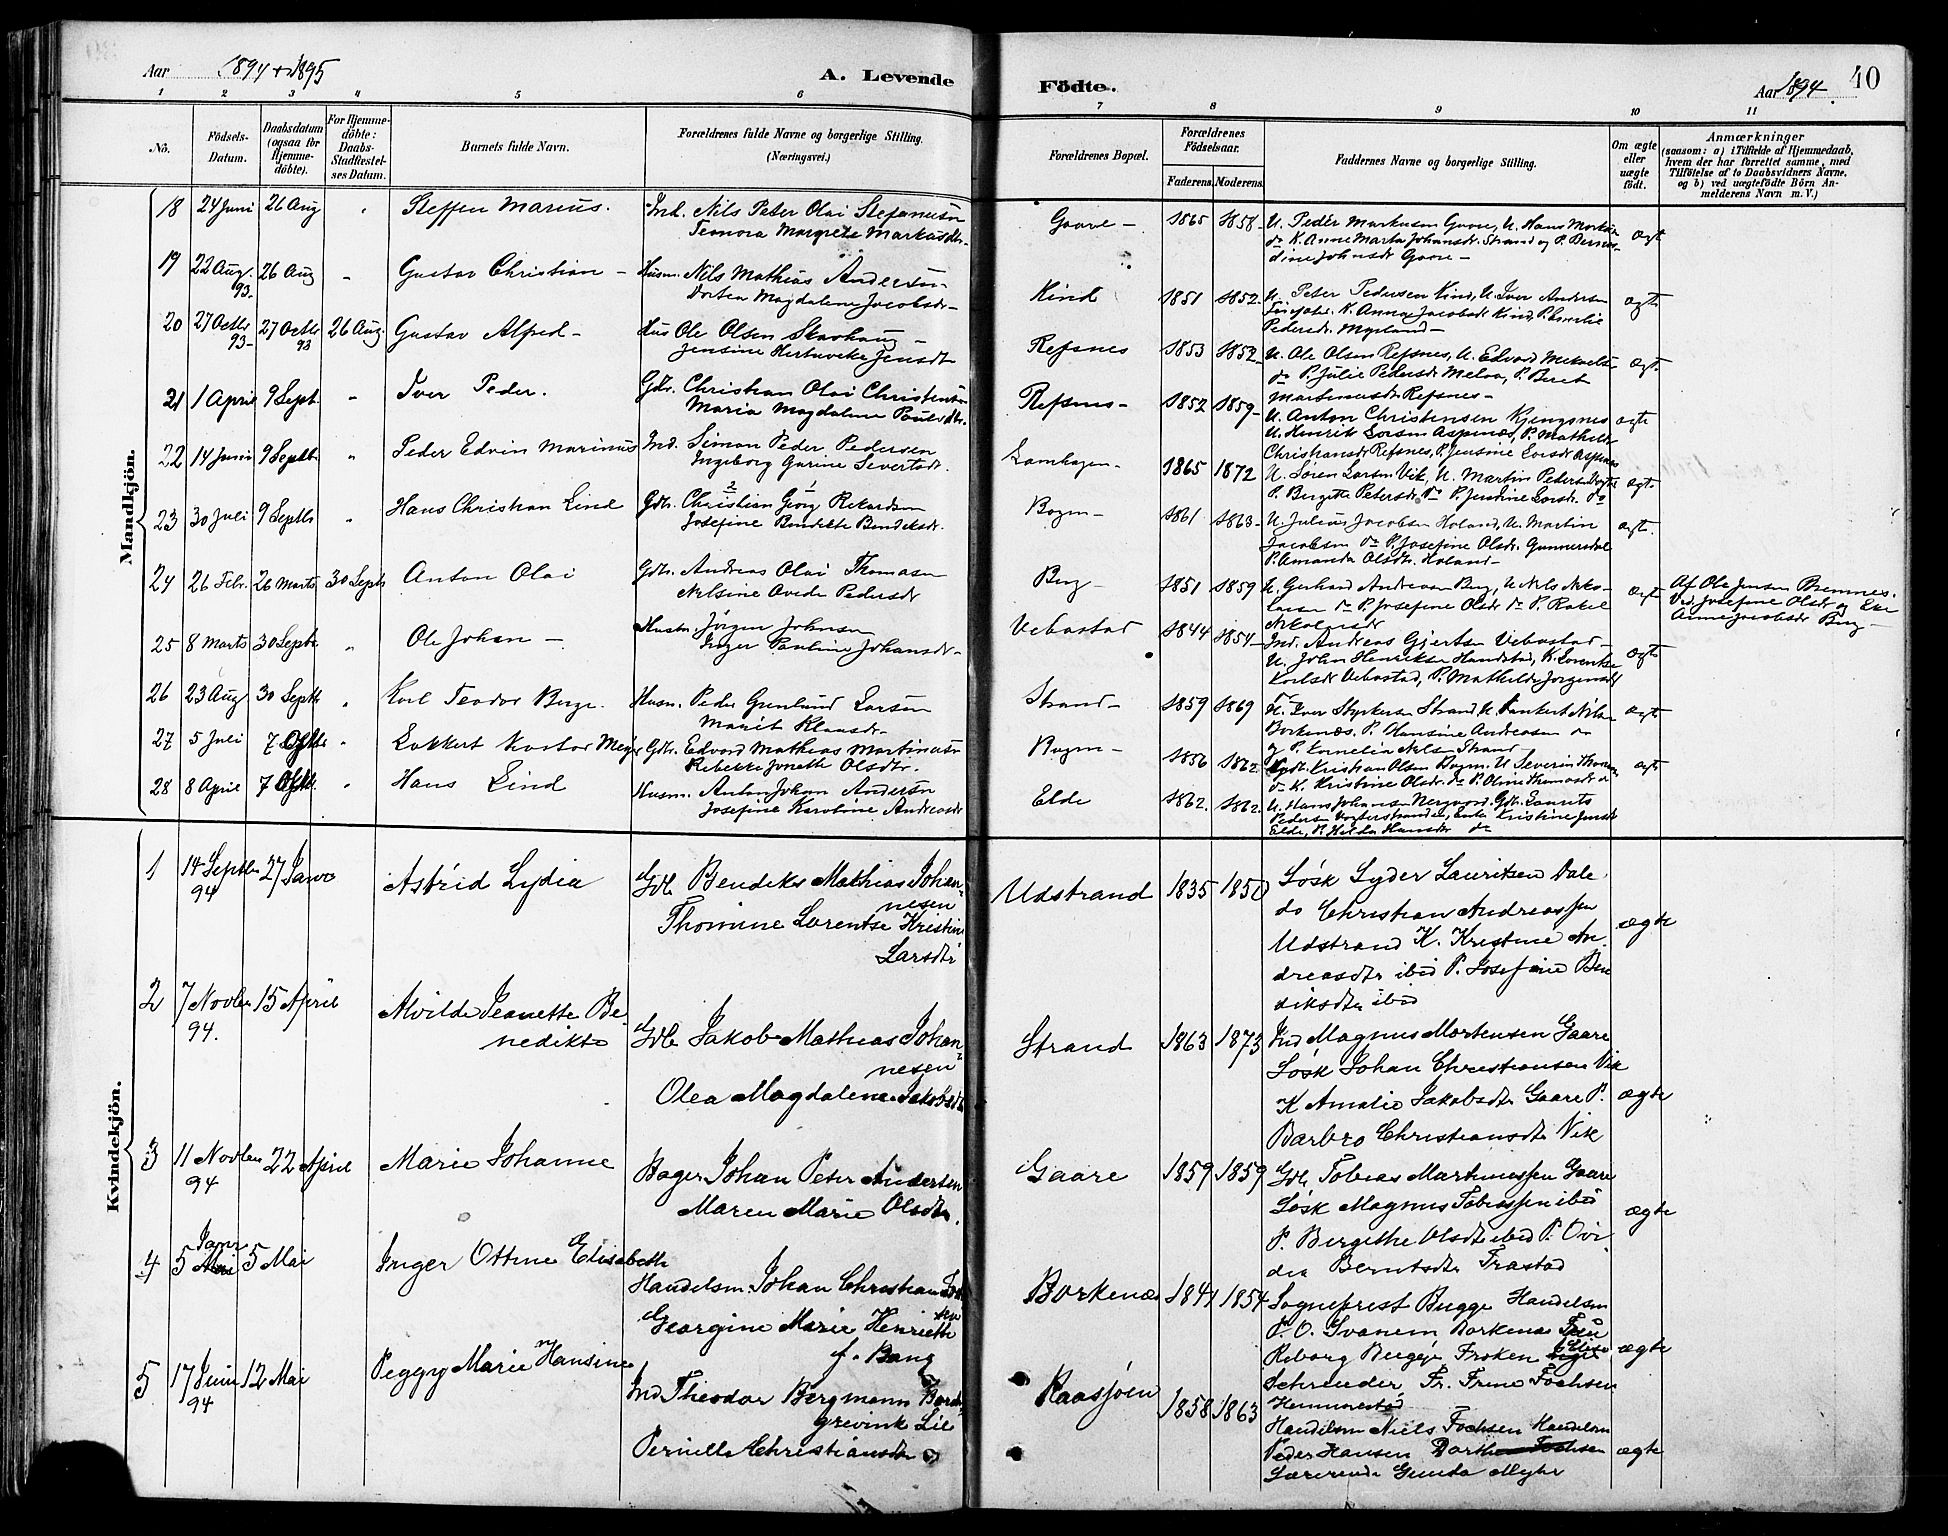 Aar 1894 + 1895
A. Levende
Födte.
Aar 1894.
40
1 2 3 4 5 6 7 8 9 10 11
No.
Födsels-Datum.
Daabsdatum (ogsaa for Hjemme-döbte).
For Hjemme-döbte: Daabs-Stadfæstel-ses Datum.
Barnets fulde Navn.
Forældrenes fulde Navne og borgerlige Stilling.
(Næringsvei.)
Forældrenes Bopæl.
Forældrenes Födselsaar.
Faderens. Moderens.
Faddernes Navne og borgerlige Stilling.
Om ægte eller uægte födt.
Anmærkninger
(saasom: a) i Tilfælde af Hjemmedaab,
hvem der har forrettet samme, med
Tilföielse af to Daabsvidners Navne,
og b) ved uægtefödte Börn An-
melderens Navn m. V.)
Mandkjön.
18 24 Juni 26 Aug " Steffen Marius. Ind. Nils Peter Olai Stefanusen
Leonora Margrete Markusdtr.
Gaare 1865 1858 U. Peder Markusen Gaare, U. Hans
do K. Anne Marta Johansdr. Strand og P. Bernar-
dine Johnsdr Gaare
ægt
19 22 Aug. 93 26 Aug " Gustav Christian Husm. Nils Mathias Andersen
Dortea Magdalene Jacobsdr
Kind 1851 1852 U. Peter Pedersen Kind, U. Iver Andersen
K. Anna Jacobsdr Kind, P. Emelie
Pedersdr. Myrland
ægte
20 27 Octbr 93 27 Octbr 93 26 Aug. Gustav Alfred Hus Ole Olsen Skavhaug
Jensine Jensdtr
Refsnes 1853 1852 U. Ole Olsen Refsnes, U. Edvard Mikaelsen
do P. Julie Pedersdr Melaa, P. Beret
Martinusdr Refsnes
ægte
21 1 April 9 Septb " Iver Peder. Gdbr. Christian Olai Christensen
Maria Magdalene Paulsdtr.
Refsnes 1852 1859 U. Anton Christensen Kjengsnes
U. Henrik Larsen Aspenæs, P. Mathilde
Christiansdr Refsnes, P. Jensine Larsdr Aspnes
ægte
22 14 Juni 9 Septb. " Peder Edvin Marinus Ind. Simon Peder Pedersen
Ingeborg Garine Sivertsdr.
1865 1872 U. Søren Larsen Vik, U. Martin Petersen
P. Birgitte Petersdr do P. Jensine Larsdr. do
ægte
23 30 Juli 9 Septbr " Hans Christian Lind Gdbr. Christian Georg Rikardsen
Josefine Bendikte Bendiksdr.
Bogen 1861 1863 U. Julius Jacobsen Holand, U. Martin
Jacobsen do P. Josefine Olsdr. Gunnersdal
P. Amanda Olsdtr. Holand
ægte
24 26 Febr. 26 Marts 30 Septb Anton Olai Gdbr. Andreas Olai Thomasen
Nilsine Ovedie Pedersdr
Berg 1851 1859 U. Gerhard Andreasen Berg, U. Nils Niko-
laisen do P. Josefine Olsdr do P. Rakel
Nikolaisdr
ægte
Af Ole Jensen Bremnes.
Ved Josefine Olsdr og
Anne Jacobsdr Berg
25 8 Marts 30 Septbr. " Ole Johan Husm. Jørgen Johnsen
Inger Pauline Johansdr
Vebostad 1844 1854 Ind. Andreas Gjertsen Vebostad
U. Johan Henriksen Haustad, K. Lorentse
Karlsdr Vebostad, P. Mathilde Jørgensdr
ægte
26 23 Aug 30 Septb " Karl Teodor Berge. Husm. Peder Grønlund Larsen
Marit Klausdr.
Strand 1859 1869 U. Iver Styrkersen Strand U. Nilsen
Borkenæs. P. Hansine Andreasen do
og P. Kornelia Nilsen Strand
ægte
27 5 Juli 7 Octbr " Lukkert Kastor Meyer Gdbr. Edvard Mathias Martinusen
Rebekka Jonette Olsdtr.
Bogen 1856 1862 Gdbr. Kristian Olsen Bogen. U Severin Thomsen
do K. Kristine Olsdr. do P. Oline Thomasdr do
ægte
28 8 April 7 Octbr. " Hans Lind Husm. Anton Johan Andersen
Josefine Karoline Andreasdr
Elde 1862. 1862. U. Hans Johansen Nergaard, Gdbr. Laurits
Pedersen Kristine Jensdr
Elde, P. Hilda Hansdr do
Kvindekjön.
1 14 Septbr 94 27 Janr Astrid Lydia Gdb Bendiks Mathias Johan-
nesen
Thomine Lorentse Kristine
Larsdtr
Udstrand 1835 1850 Løsk Syder Lauritsen Dale
do Christian Andreassen
Udstrand K. Kristine An-
dreasdtr ibid P. Josefine Ben
diksdtr ibid
ægte
2 7 Novbr 94. 15 April Alvilde Jeanette Be-
nedikte
Gdb Jakob Mathias Johan-
nesen
Olea Magdalena Jakobsdtr
Strand 1863 1873 Ind Magnus Mortensen Gaare
Løsk Johan Christiansen Vik
K Amalie Jakobsdtr Gaare P.
Barbro Christiansdtr Vik
ægte
3 11 Novbr 94 22 April Marie Johanne Bager Johan Peter Andersen
Maren Marie Olsdtr.
Gaare 1859 1859 Gdb Tobias Martinussen Gaare
Løsk Magnus Tobiassen ibid
P. Bergithe Olsdtr ibid P. Ovi-
dia Berntsdtr Trastad
ægte
4 5 Janr 5 Mai Inger Ottine Elisabeth
Handelsm. Johan Christian
Georgine Marie Henriette
f. Bang
Borkenæs 1841 1854 Sogneprest Bugge Handelsm
P. O. Svanem Borkenæs Fru
Riborg Bugge Frøken Elise
Schrøder Fr. Trine Fochsen
Hemmestad
ægte
5 17 Juni 94 12 Mai Peggy Marie Hansine
Ind Theodor Bergmann Bord-
grevink Lie
Pernille Christiansdtr
Raasjøen 1858 1863 Handelsm Niels Fochsen Handelsm
Peder Hansen
Lærerinde Gunda Myhre
ægte